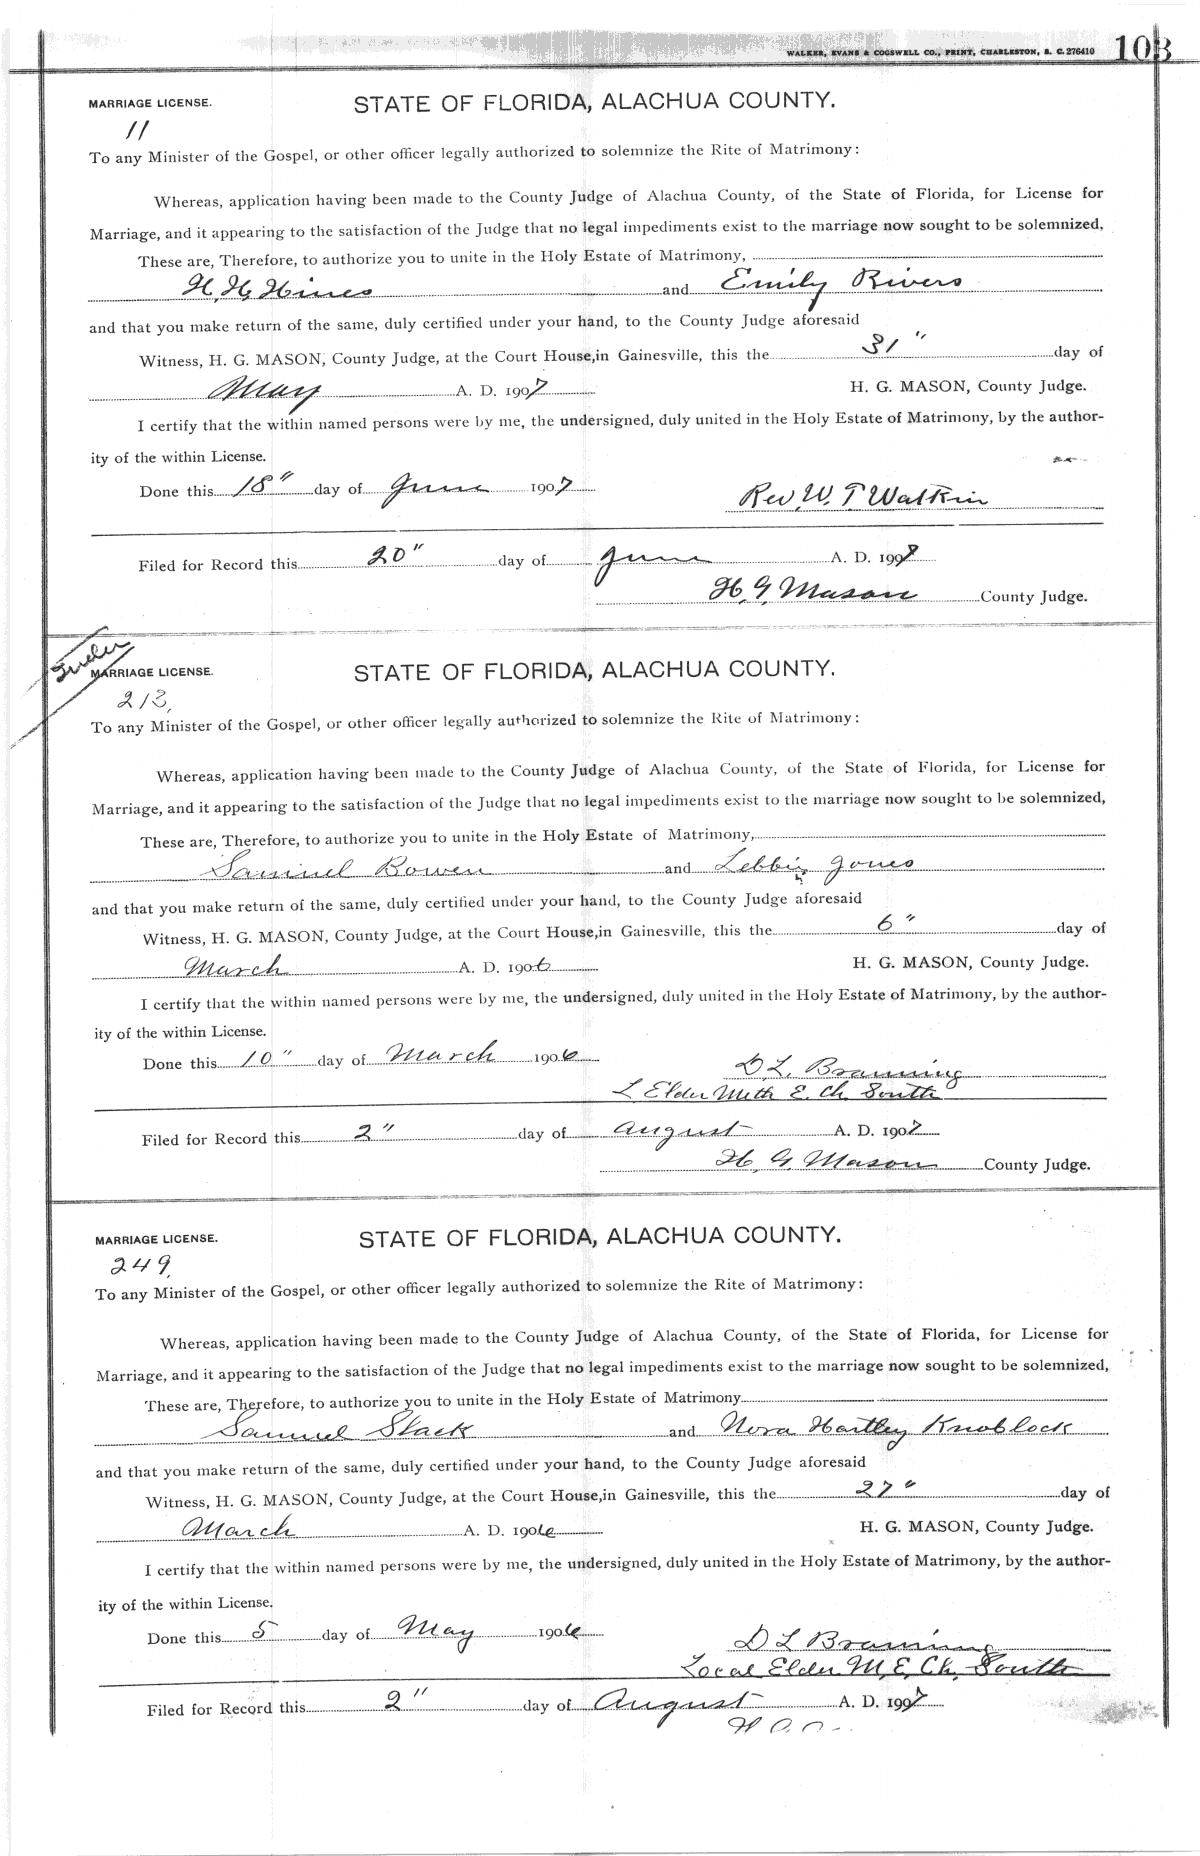 WALKER, EVANS & COGSWELL CO., PRINT, CHARLESTON, S. C. 276410 103
MARRIAGE LICENSE. STATE OF FLORIDA, ALACHUA COUNTY.
11
To any Minister of the Gospel, or other officer legally authorized to solemnize the Rite of Matrimony:
Whereas, application having been made to the County Judge of Alachua County, of the State of Florida, for License for
Marriage, and it appearing to the satisfaction of the Judge that no legal impediments exist to the marriage now sought to be solemnized,
These are, Therefore, to authorize you to unite in the Holy Estate of Matrimony,
H. H. Hines and Emily Rivers
and that you make return of the same, duly certified under your hand, to the County Judge aforesaid
Witness, H. G. MASON, County Judge, at the Court House, in Gainesville, this the 31" day of
May A. D. 1907 H. G. MASON, County Judge.
I certify that the within named persons were by me, the undersigned, duly united in the Holy Estate of Matrimony, by the author-
ity of the within License.
Done this 18" day of June 1907 Rev. W. T. Watkin
Filed for Record this 20" day of June A. D. 1907
H. G. Mason County Judge.
MARRIAGE LICENSE. STATE OF FLORIDA, ALACHUA COUNTY.
213,
To any Minister of the Gospel, or other officer legally authorized to solemnize the Rite of Matrimony:
Whereas, application having been made to the County Judge of Alachua County, of the State of Florida, for License for
Marriage, and it appearing to the satisfaction of the Judge that no legal impediments exist to the marriage now sought to be solemnized,
These are, Therefore, to authorize you to unite in the Holy Estate of Matrimony,
Samuel Bowen and Lebbie Jones
and that you make return of the same, duly certified under your hand, to the County Judge aforesaid
Witness, H. G. MASON, County Judge, at the Court House, in Gainesville, this the 6" day of
March A. D. 1906 H. G. MASON, County Judge.
I certify that the within named persons were by me, the undersigned, duly united in the Holy Estate of Matrimony, by the author-
ity of the within License.
Done this 10" day of March 1906 D L. Branning
L Elder Meth E. Ch. South
Filed for Record this 2" day of August A. D. 1907
H. G. Mason County Judge.
MARRIAGE LICENSE. STATE OF FLORIDA, ALACHUA COUNTY.
249,
To any Minister of the Gospel, or other officer legally authorized to solemnize the Rite of Matrimony:
Whereas, application having been made to the County Judge of Alachua County, of the State of Florida, for License for
Marriage, and it appearing to the satisfaction of the Judge that no legal impediments exist to the marriage now sought to be solemnized,
These are, Therefore, to authorize you to unite in the Holy Estate of Matrimony
Samuel Slack and Nora Hartley Knoblock
and that you make return of the same, duly certified under your hand, to the County Judge aforesaid
Witness, H. G. MASON, County Judge, at the Court House, in Gainesville, this the 27" day of
March A. D. 1906 H. G. MASON, County Judge.
I certify that the within named persons were by me, the undersigned, duly united in the Holy Estate of Matrimony, by the author-
ity of the within License.
Done this 5 day of May 1906 D L Branning
Local Elder M. E. Ch. South
Filed for Record this 2" day of August A. D. 1907